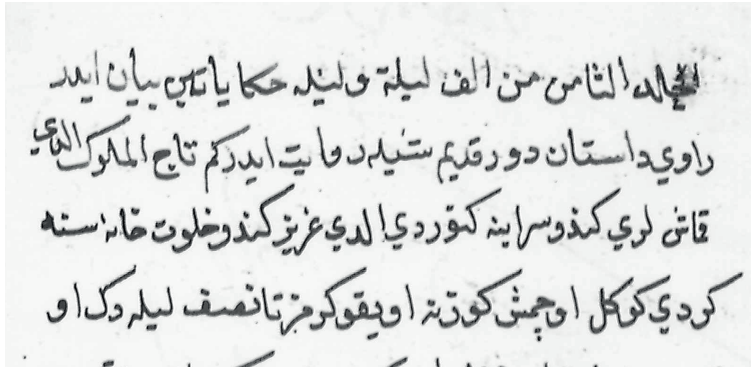 المجلد الثامن من الف ليلة وليله حكاياتين بيان ايدر
راوي داستان دور قديم شيله روايت ايدركم تاج الملوك الداعي
قماش لري كندو سراينه كتوردي الدي عزيز كندو خلوت خانه سنه
كردي كوكل اوچمش كوزنه اويقو كرمز تا نصف ليله دك او